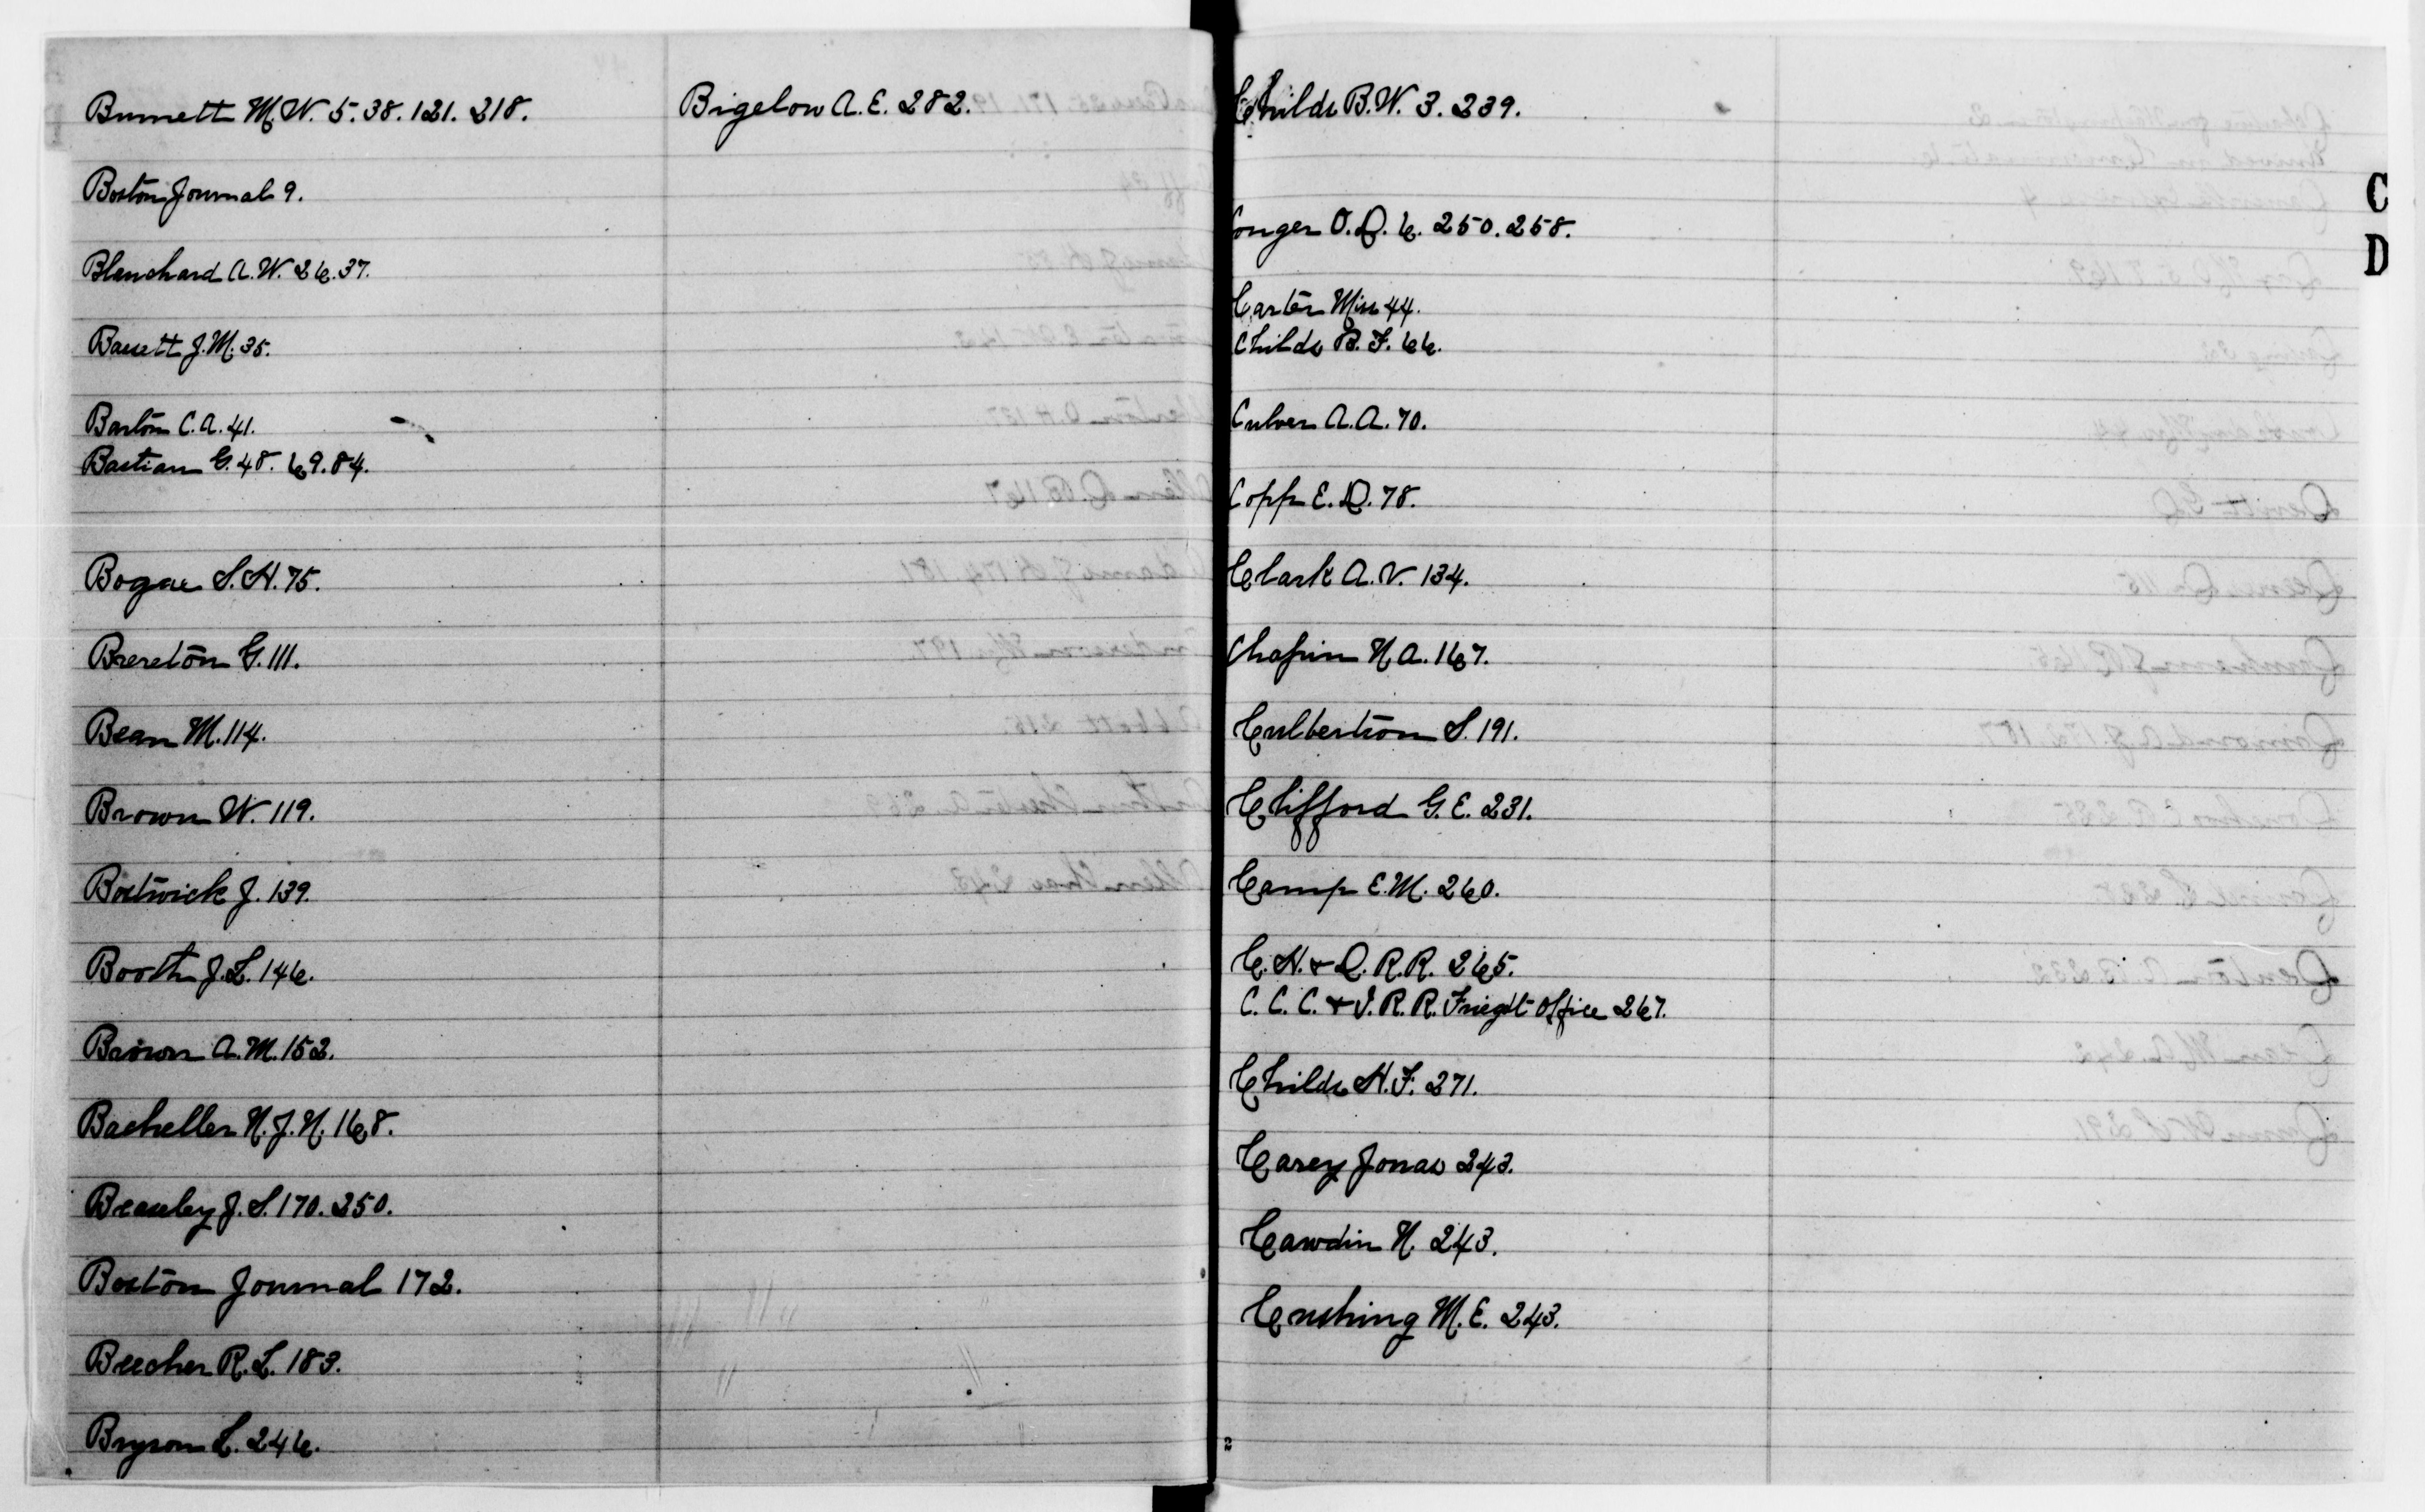 Burnett M. W. 5. 38. 121. 218.
Boston Journal 9.
Blanchard A. W. 26. 37.
Bassett J. M. 35.
Barton C. A. 41.
Bastian G. 48. 69. 84.
Bogue S. H. 75.
Brereton G. 111.
Bean M. 114.
Brown W. 119.
Bostwick J. 139.
Booth J. L. 146.
Brown A. M. 152.
Bacheller N. J. N. 168.
J. S. 170. 250.
Boston Journal 172.
Beecher R. L. 183.
Bryson L. 246.
Bigelow A. E. 282.
Childs B. W. 3. 239.
Conger O. D. 6. 250. 258.
Carter Miss 44.
Childs B. F. 66.
Culver A. A. 70.
Copp E. D. 78.
Clark A. V. 134.
Chapin N A. 167.
Culbertson S. 191.
Clifford G. E. 231.
Camp E. M. 260.
C. H. & D. R. R. 265.
C. C. C. & I. R. R. Freight Office 267.
Childs H. F. 271.
Carey Jonas 243.
Cawdin N. 243.
Cushing M. E. 243.
C
D
2